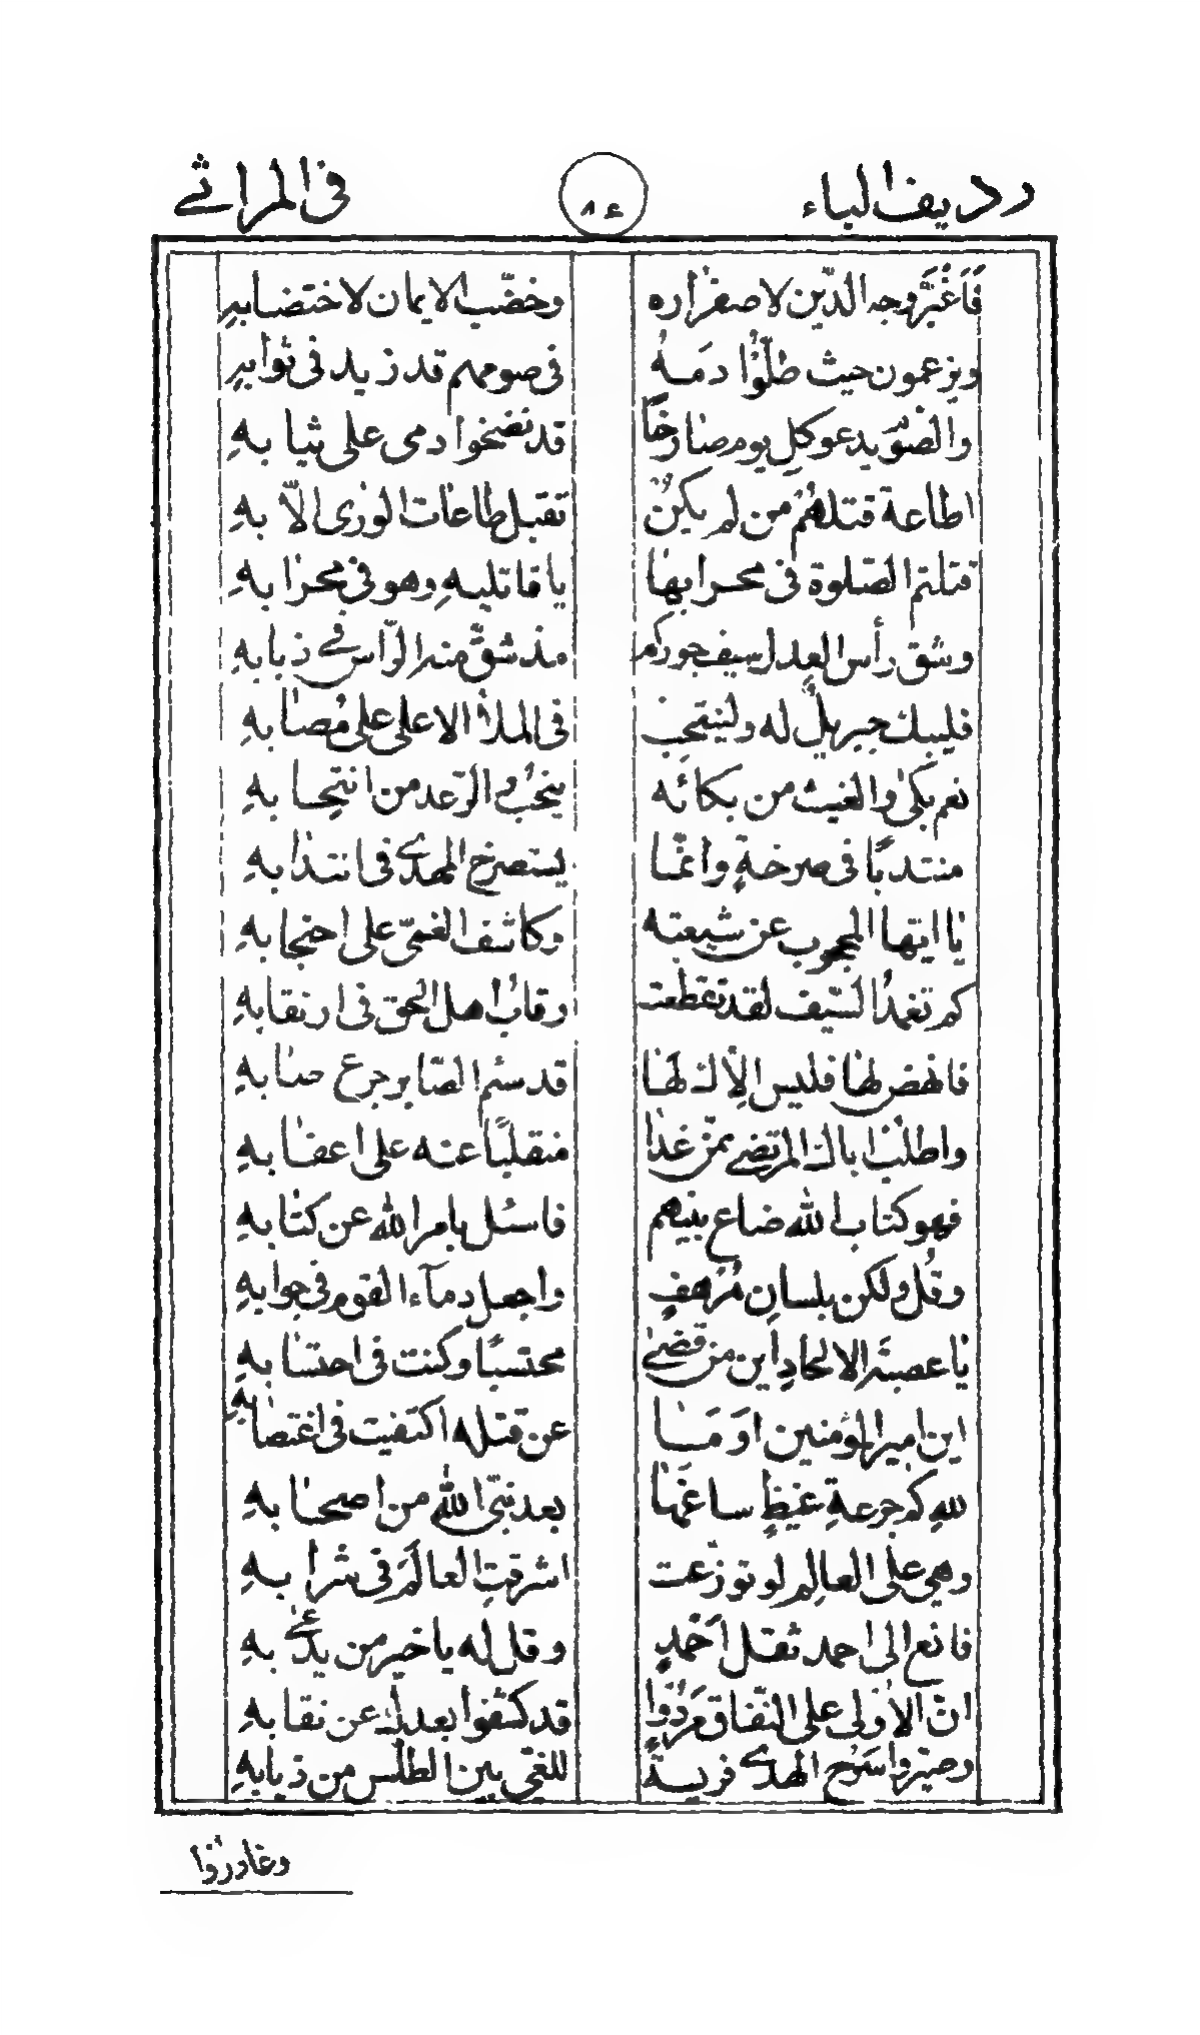 رديف الباء ٨٤ فى المراثے
فَاغْبَرَّ وجه الدّين لاصفراره وخضّب الايمان لاختضابهِ
ويزعمون حيث طلّوُا دمَهُ فى صومهم قد زيد فى ثوابهِ
والصّوم يدعو كلّ يوم صارخًا قد نضخوا دمى على ثيابهِ
اطاعة قتلهُمُ من لم يكنْ تقبل طاعات الورى الّا بهِ
قتلتم الصّلوة فى محرابها يا قاتليهِ وهو فى محرابهِ
وشق رأس العدل سيف جوركم مذ شقّ منه الرّاس فے ذبابهِ
فليبك جبريلُ له ولينتحِب فى الملأ الاعلى على مُصابهِ
نعم بكى والغيث من بكائه ينحُب والرّعد من انتحابهِ
منتدبًا فى صرخةٍ وانّما يستصرخ المهدے فى انتدابهِ
يا ايّها المحجوب عن شيعته وكاشف الغمّى على احتجابهِ
كم تغمدُ السّيف لقد تقطعت رقابُ اهل الحق فى ارتقابهِ
فانهض لها فليس الّاك لها قد سئم الصّابر جرع صابهِ
واطلُب اباك المرتضے ممّن غدا منقلبًا عنه على اعقابهِ
فهو كتاب الله ضاع بينهم فاسئل بامر الله عن كتابهِ
وقُل ولكن بلسانٍ مُرْهفٍ واجعل دمآء القوم فى جوابهِ
يا عصبة الالحادِ اين من قضےٰ محتسبًا وكنت فى احتسابهِ
اين امير المؤمنين اوَ مَا عن قتله اكتفيت فى اغتصابهِ
للهِ كم جرعةِ غيظٍ ساغَها بعد نبىّ الله من اصحابهِ
وهى على العالِم لو توزّعت اشرقتِ العالَم فى شرابهِ
فانع الى احمد ثقل اَحمدٍ وقل له يا خير من يدعے به
انّ الاُولى على النّفاق مَرَدُوا قد كشفوا بعدك عن نقابهِ
وصيّروا سَرْح الهدے فريسة للغىّ بين الطُّلس من ذيابهِ
وغادرُوا